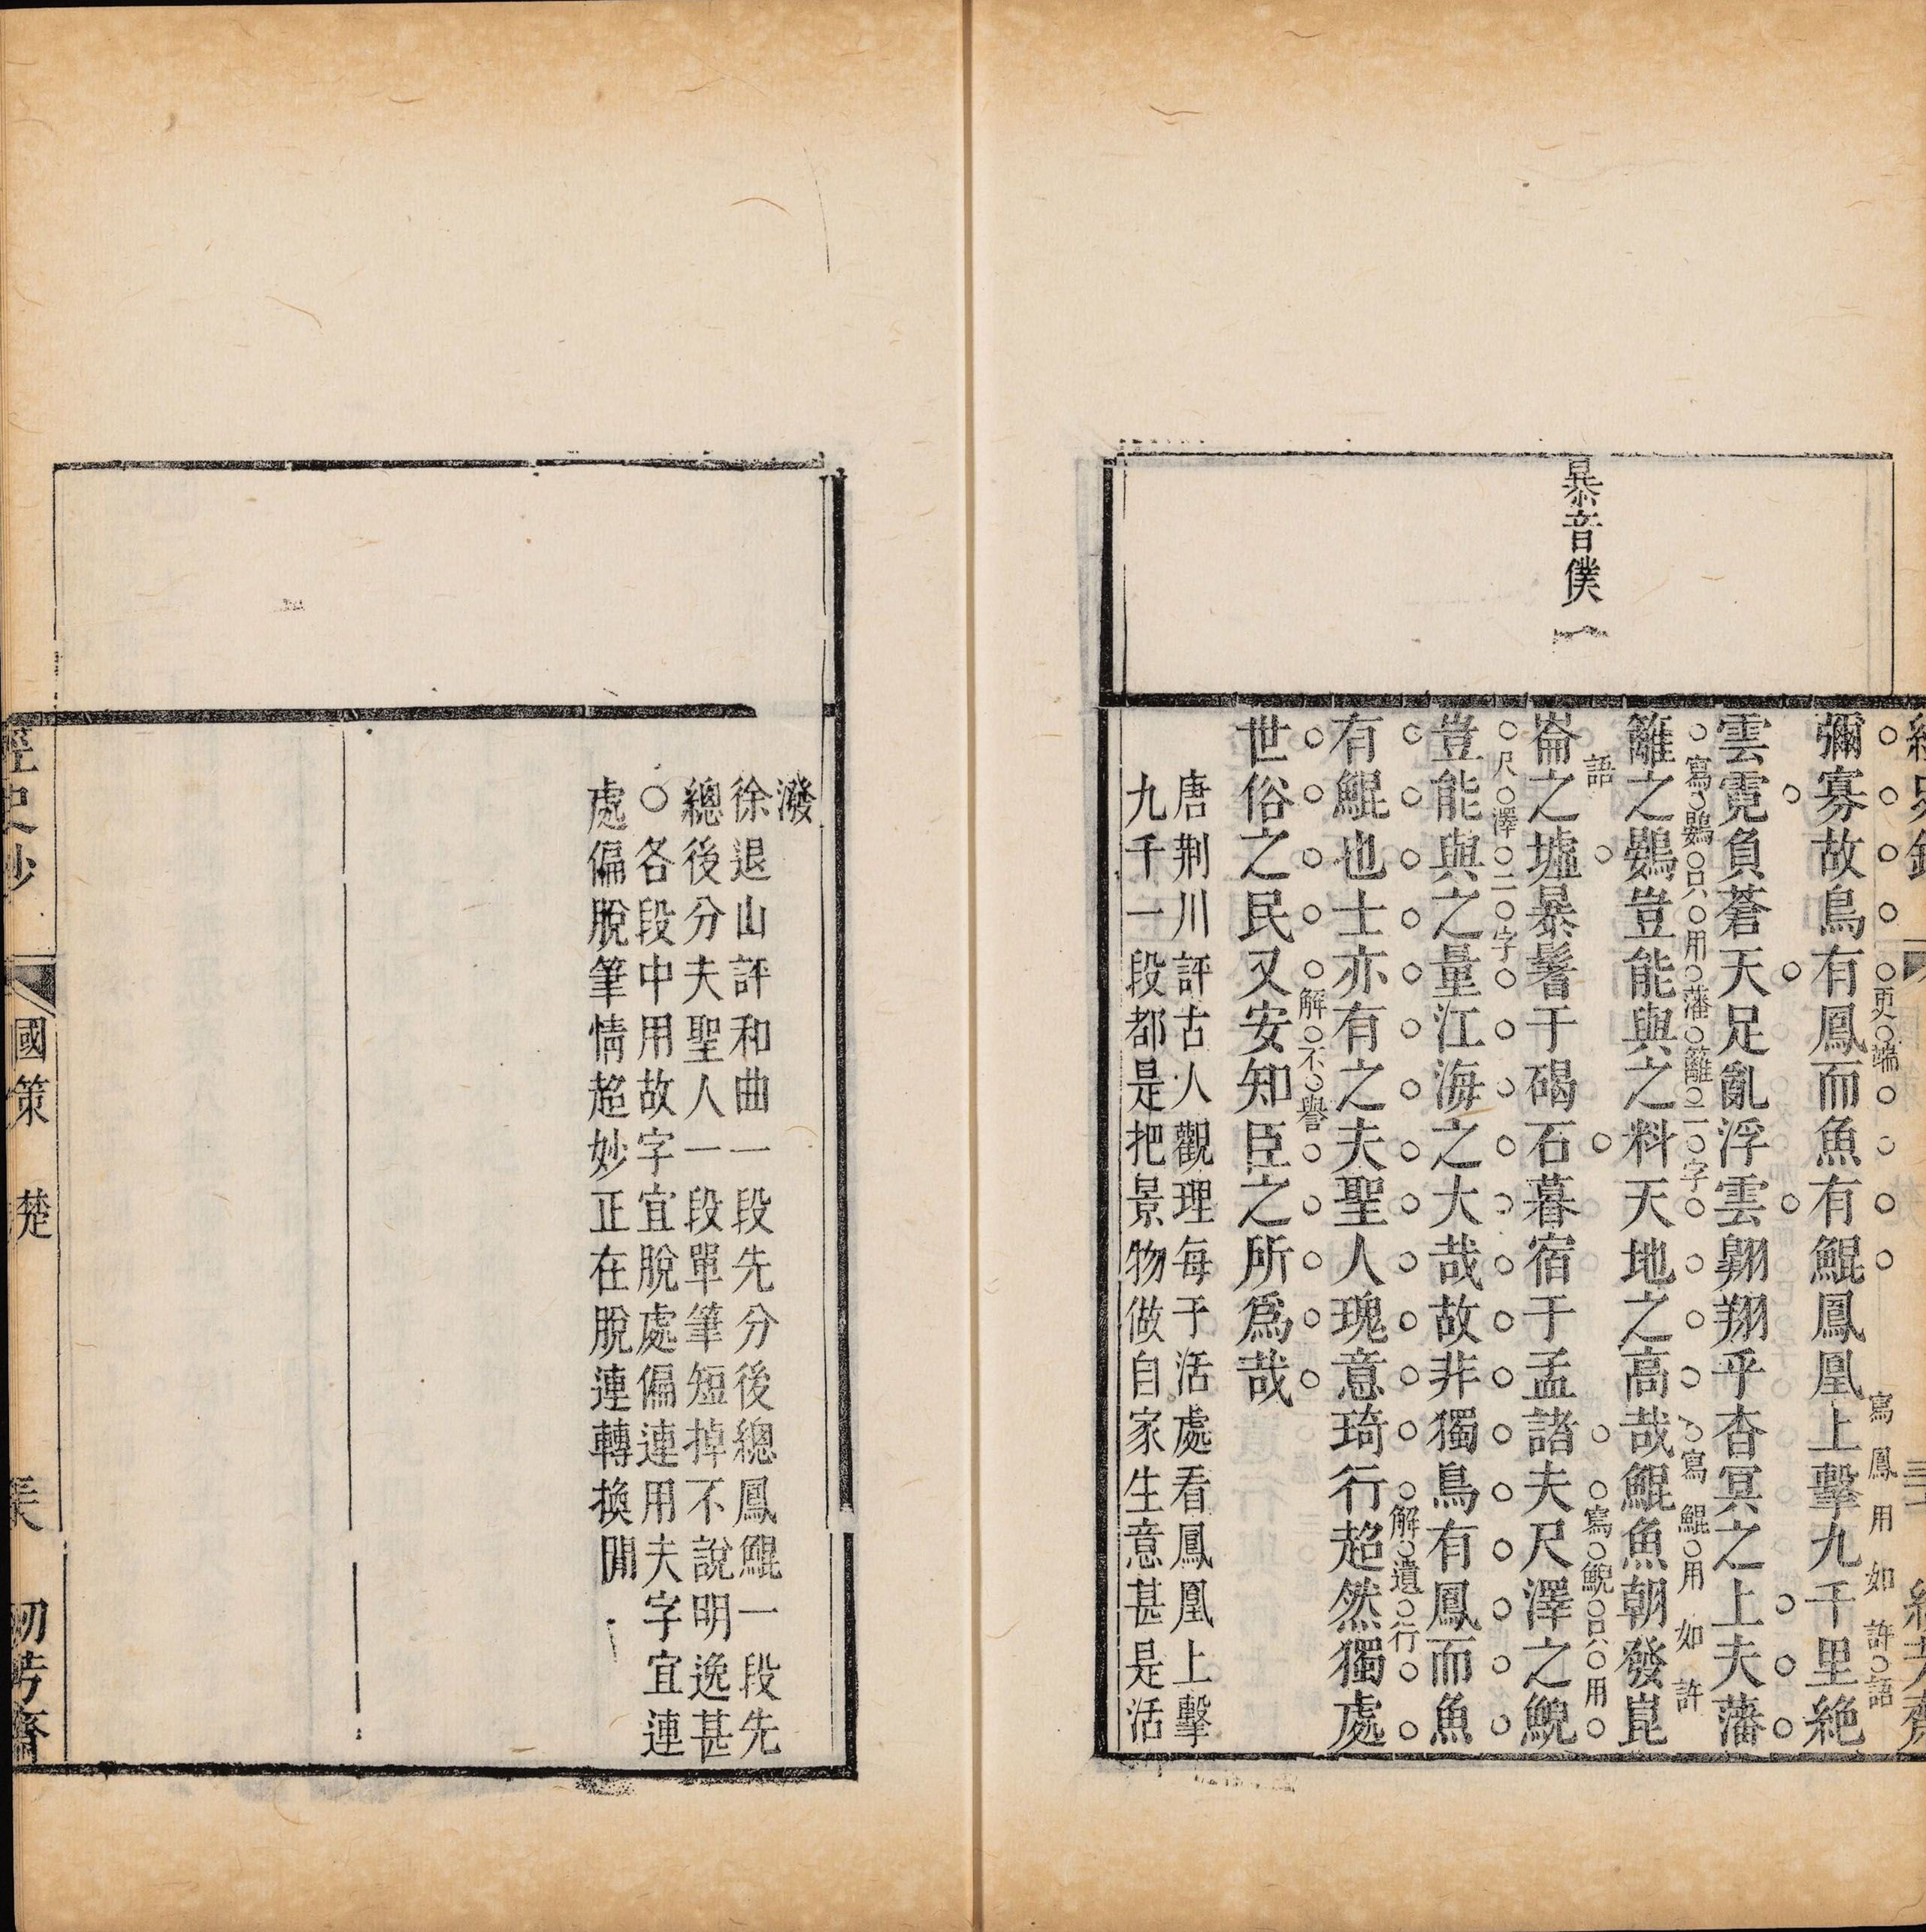 暴音僕
彌寡故鳥有鳳而魚有鯤鳳凰上擊九千里絶
更端
寫鳳用如許語
雲霓負蒼天足亂浮雲翺翔乎杳冥之上夫藩
籬之鷃豈能與之料天地之高哉鯤魚朝發崑
寫鷃只用藩籬二字
寫鯤用如許
語
崙之墟暴鬐于碣石暮宿于孟諸夫尺澤之鯢
寫鯢只用
尺澤二字
豈能與之量江海之大哉故非獨鳥有鳳而魚
有鯤也士亦有之夫聖人瑰意琦行超然獨處
解遺行
世俗之民又安知臣之所爲哉
解不譽
唐荆川評古人觀理每于活處看鳳凰上擊
九千一段都是把景物做自家生意甚是活
潑
徐退山評和曲一段先分後總鳳鯤一段先
總後分夫聖人一段單筆短掉不說明逸甚
○各段中用故字宜脫處偏連用夫字宜連
處偏脫筆情超妙正在脫連轉換閒
國策 楚